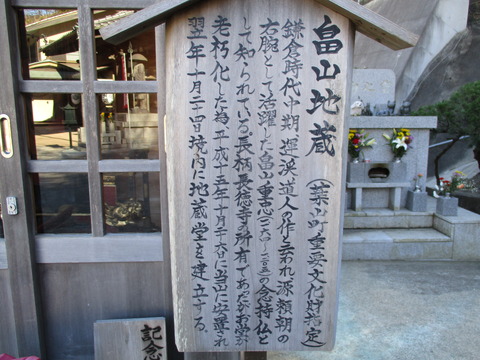 畠山地蔵
(葉山町重要文化財指定)
鎌倉時代中期、運渓道人の作と云われ、源頼朝の
右腕として活躍した畠山重忠(一一六四〜一二〇五)の念持仏と
して知られている。長柄長徳寺の所有であったがお堂が
老朽化した為、平成十五年十月二十六日に当山に安置され
翌年十月二十四日境内に地蔵堂を建立する。
記念